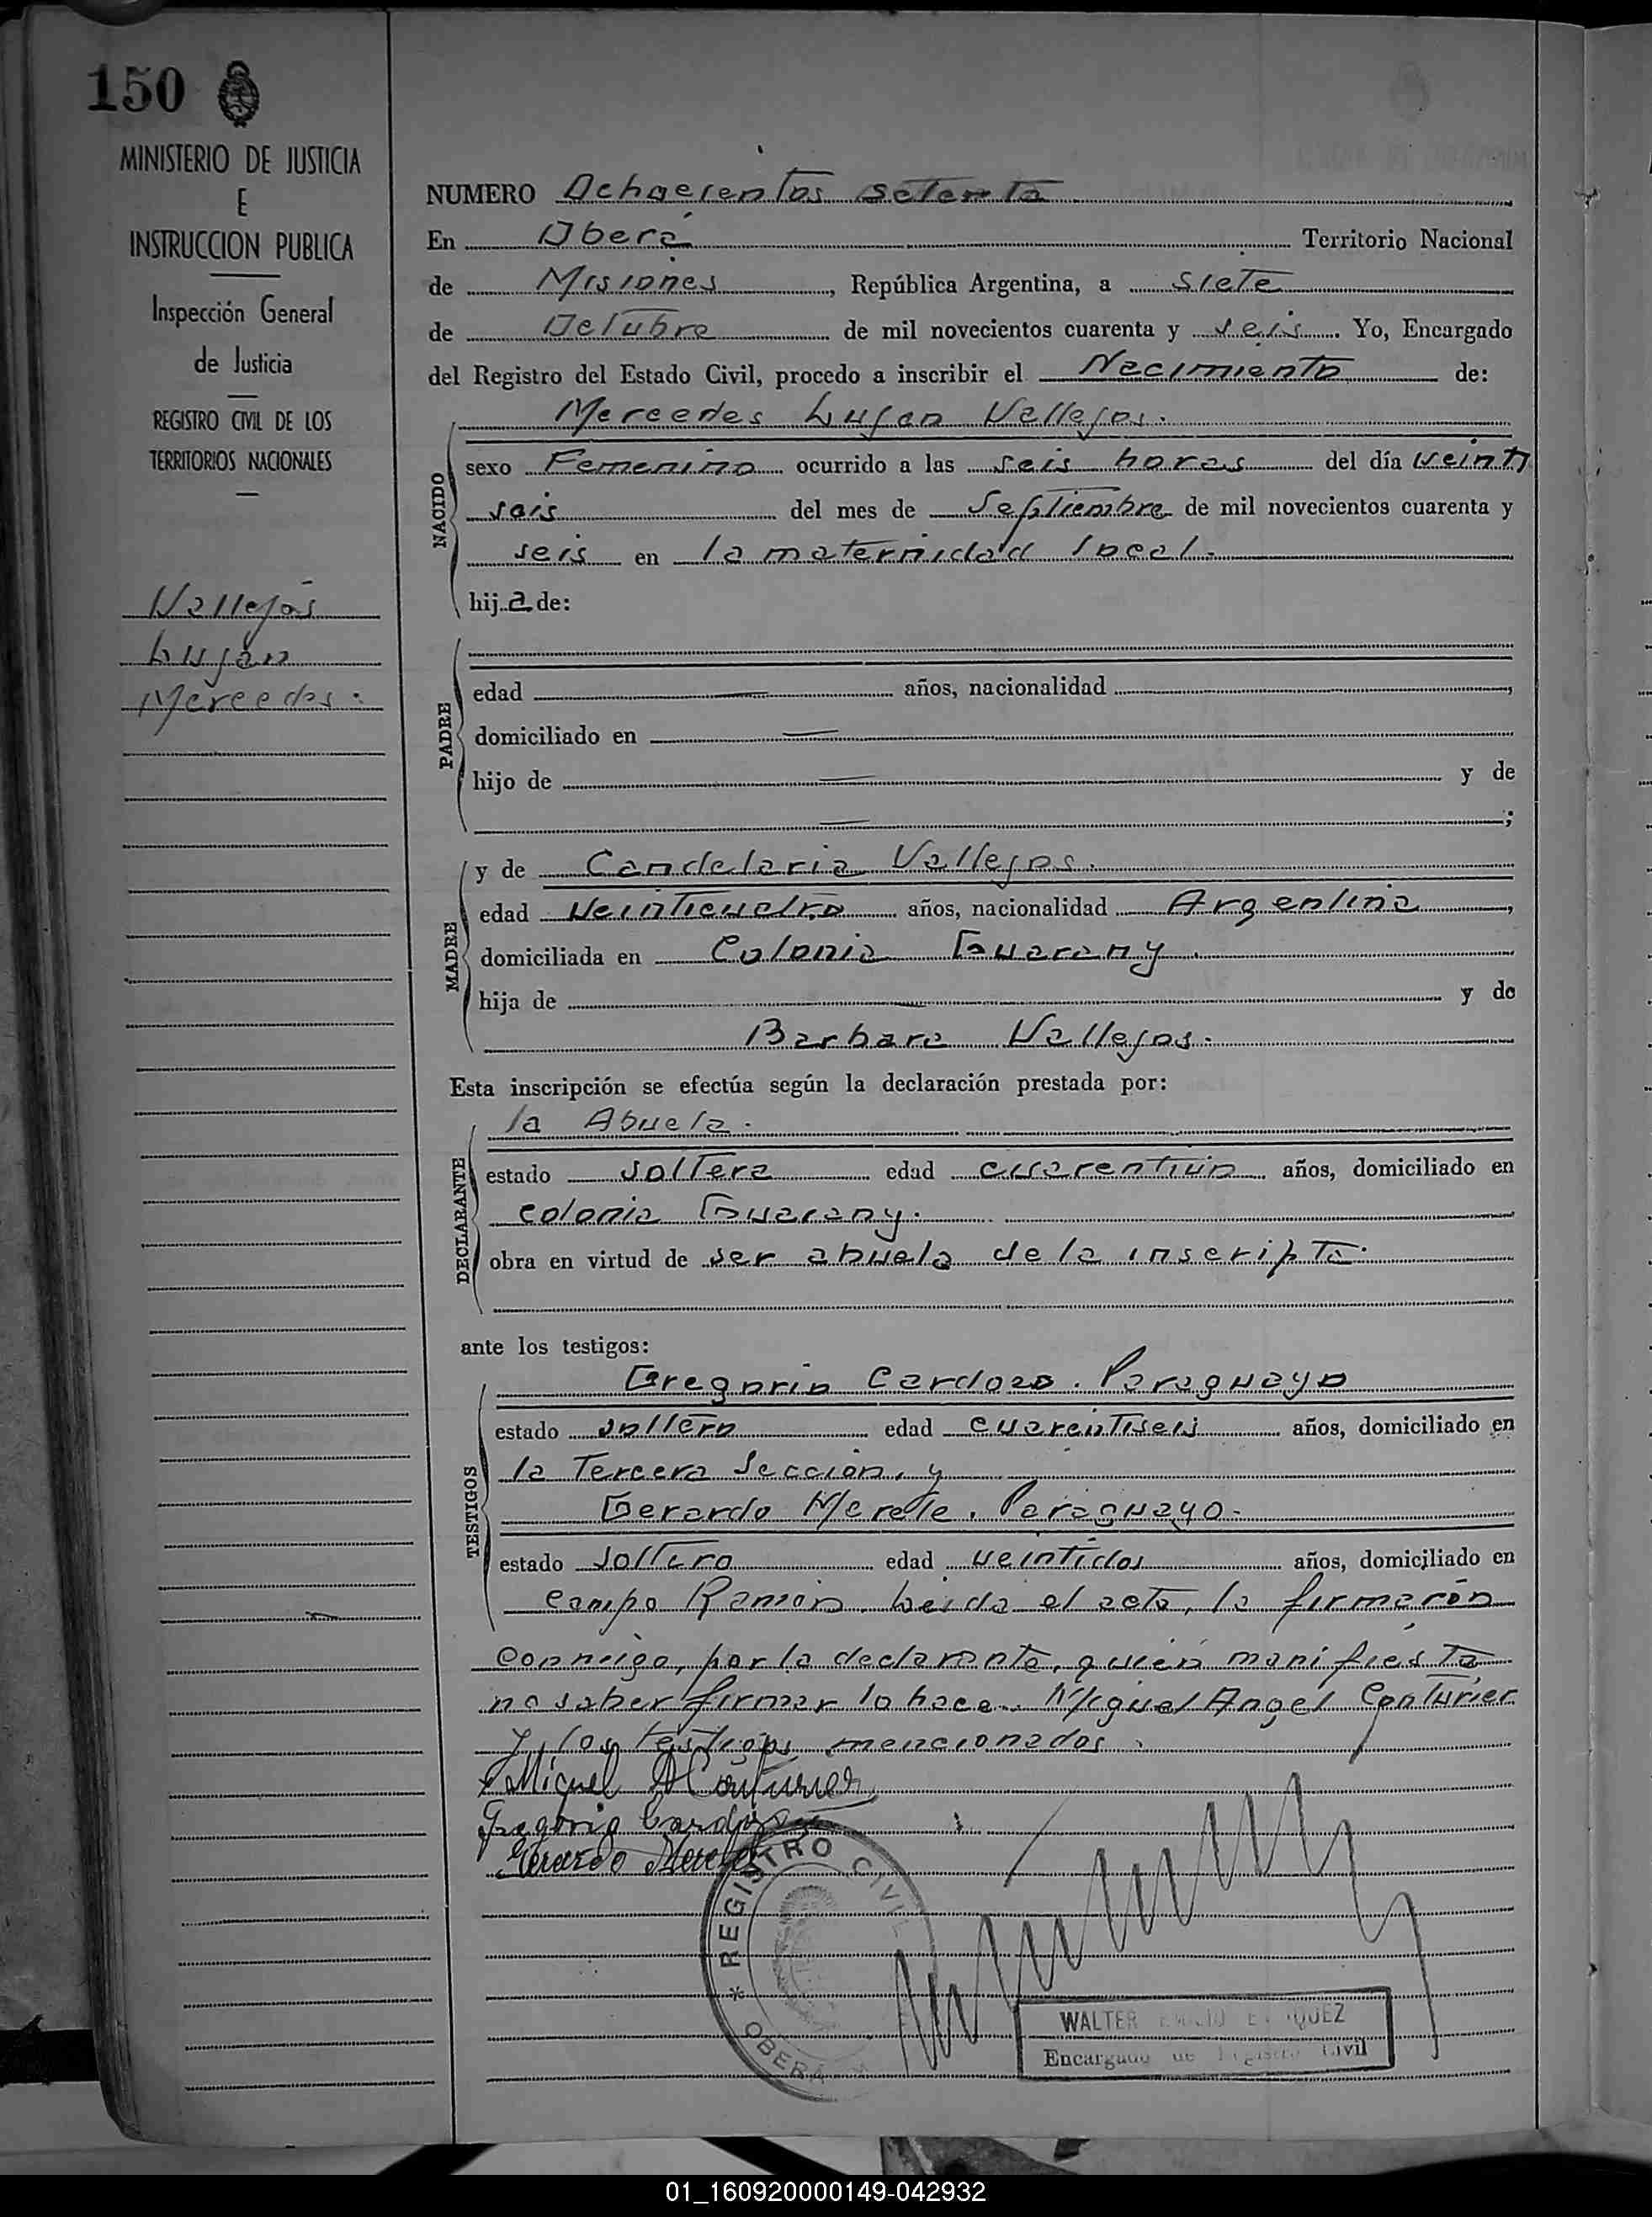 150
MINISTERIO DE JUSTICIA
E
INSTRUCCION PUBLICA
Inspección General
de Justicia
REGISTRO CIVIL DE LOS
TERRITORIOS NACIONALES
Vallejos
Lujan
Mercedes.
NUMERO Ochocientos setenta
En Oberá Territorio Nacional
de Misiones, República Argentina, a siete
de Octubre de mil novecientos cuarenta y seis. Yo, Encargado
del Registro del Estado Civil, procedo a inscribir el Nacimiento de:
NACIDO
Mercedes Lujan Vallejos.
sexo Femenino ocurrido a las seis horas del día veinti
seis del mes de Septiembre de mil novecientos cuarenta y
seis en la maternidad local.
hija de:
PADRE
edad años, nacionalidad ,
domiciliado en
hijo de y de
;
MADRE
y de Candelaria Vallejos.
edad veinticuatro años, nacionalidad Argentina,
domiciliada en Colonia Guarany.
hija de y de
Barbara Vallejos.
Esta inscripción se efectúa según la declaración prestada por:
DECLARANTE
la Abuela.
estado soltera edad cuarentiún años, domiciliado en
colonia Guarany.
obra en virtud de ser abuela de la inscripta.
ante los testigos:
TESTIGOS
Gregorio Cardozo. Paraguayo
estado soltero edad cuarentiseis años, domiciliado en
la Tercera Sección, y
Gerardo Merele. Paraguayo.
estado soltero edad veintidos años, domiciliado en
campo Ramón. Leida el acta, la firmarón
conmigo, por la declarante, quién manifiesta
no saber firmar lo hace. Miguel Angel Conturier
y los testigos mencionados.
Miguel A Conturier
Gregorio Cardozo
Gerardo Merele
* REGISTRO CIVIL
OBERÁ
WALTER
Encargado de Registro Civil
01_160920000149-042932